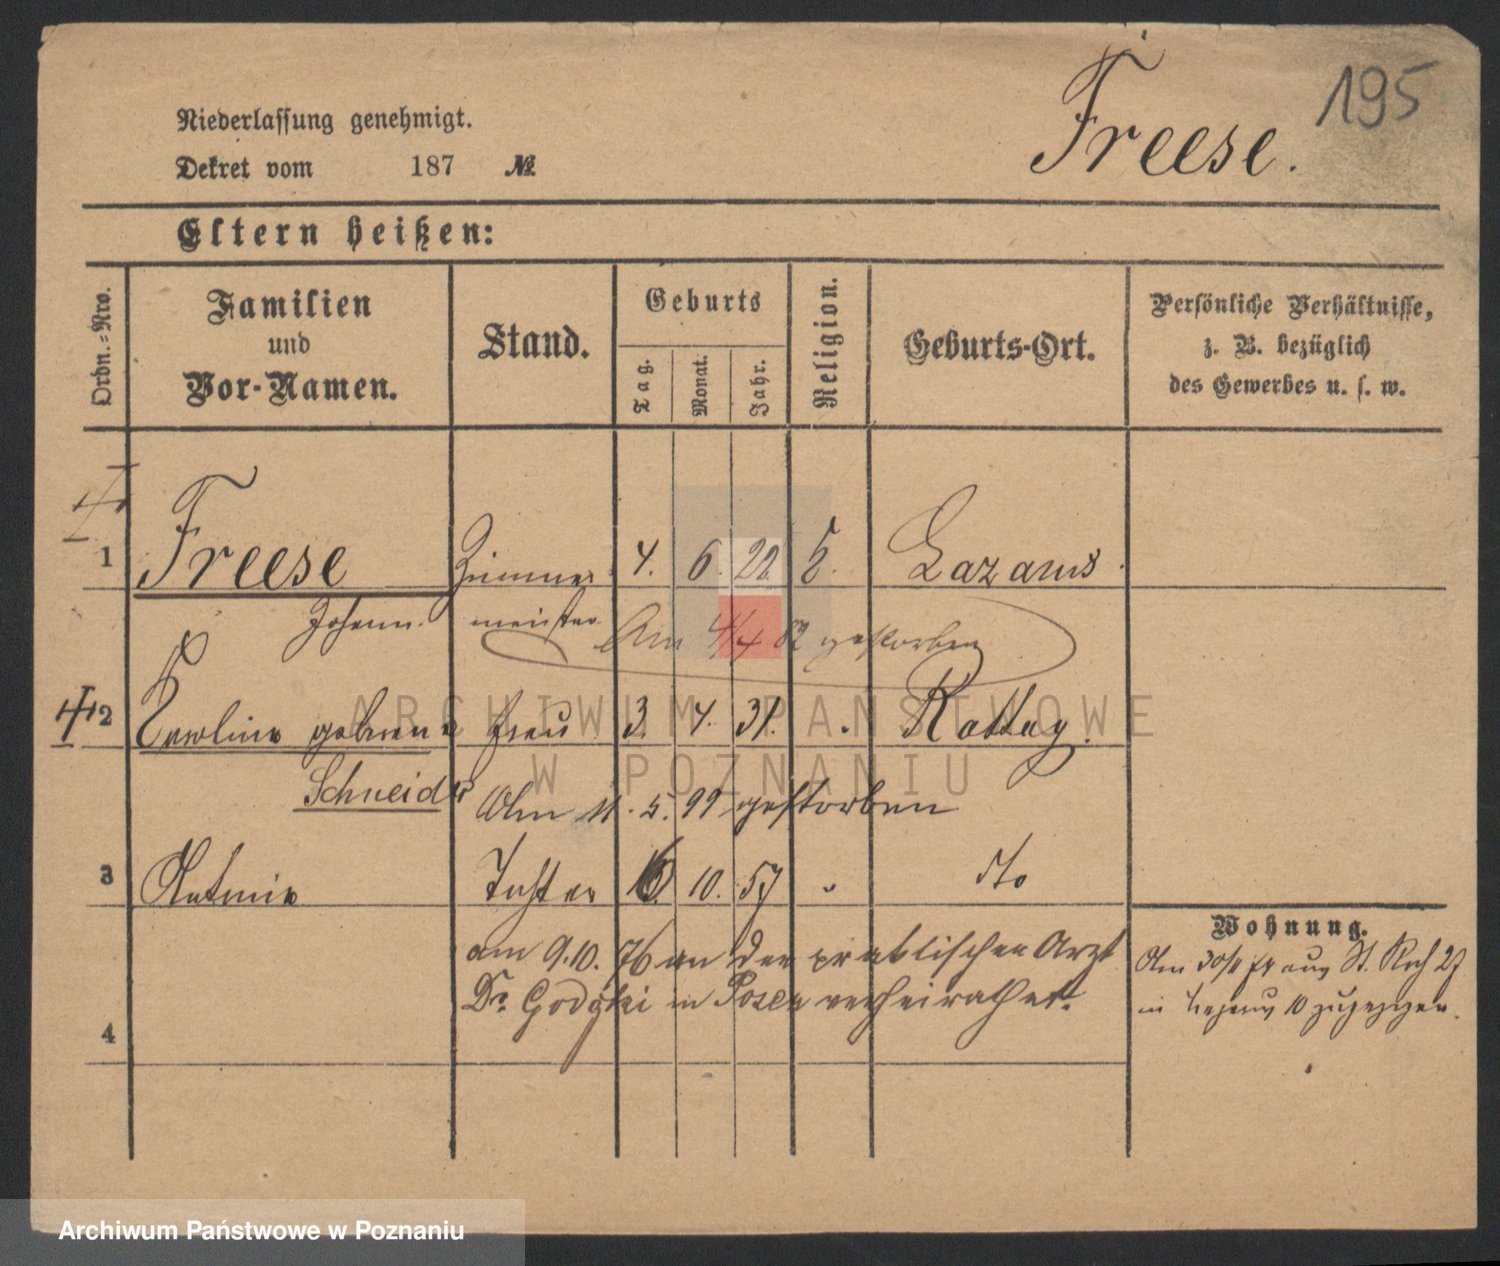 195
Freese.
Niederlassung genehmigt.
Dekret vom 187 №
Eltern heißen:
Ordn.=Nro.
Familien
und
Vor-Namen.
Stand.
Geburts
Tag.
Monat.
Jahr.
Religion.
Geburts-Ort.
Persönliche Verhältnisse,
z. B. bezüglich
des Gewerbes u. s. w.
1 Freese Zimmer 4. 6. 22. Lazarus
Johann. meister
Am 4/4 82 gestorben
2 geborene Frau 3. 4. 31. Rattay.
Schneider
Am 11. 5. 99 gestorben
3 Tochter 10. 57 dto
am 9.10. 76 an den praktischen Arzt
Dr. in Posen verheirathet.
4
Wohnung.
Am aus St. 27
in 10 zugezogen.
ARCHIWUM PAŃSTWOWE
W POZNANIU
Archiwum Państwowe w Poznaniu